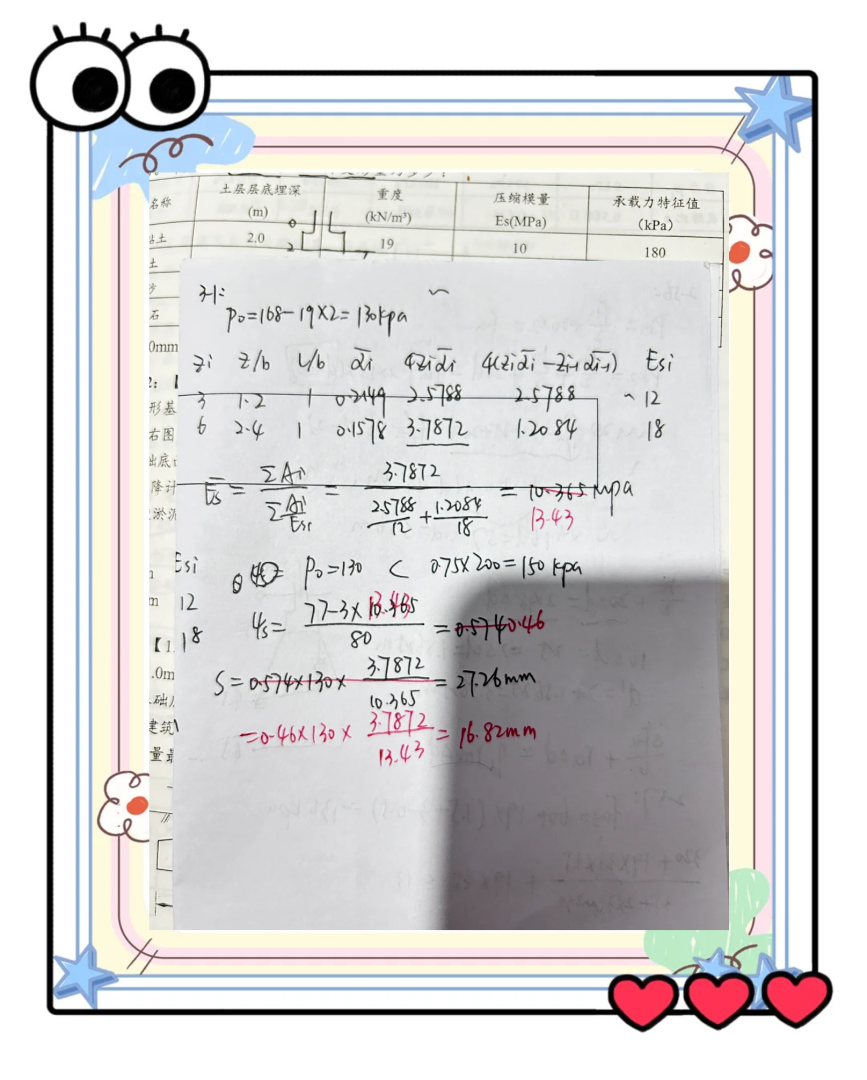 名称 土层层底埋深 (m) 重度 (kN/m³) 压缩模量 Es(MPa) 承载力特征值 (kPa)
粘土 2.0 19 10 180
0
2
土
沙
石
0mm
2:
形基
右图
出底
降计
淤泥
3-1:
P₀=168-19×2=130kpa
zi z/b l/b ᾱi 4ziᾱi 4(ziᾱi-zi-1ᾱi-1) Esi
3 1.2 1 0.2149 2.5788 2.5788 ~12
6 2.4 1 0.1578 3.7872 1.2084 18
Ēs = ΣAi / Σ(Ai/Esi) = 3.7872 / (2.5788/12 + 1.2084/18) = 10.365 Mpa
13.43
P₀=130 < 0.75×200=150kpa
Esi
12
18
ψs = (77-3×10.365)/80 = 0.574 0.46
13.43
S=0.574×130× 3.7872/10.365 = 27.26mm
=0.46×130× 3.7872/13.43 = 16.82mm
m
【1
.0m
础
建筑
量最